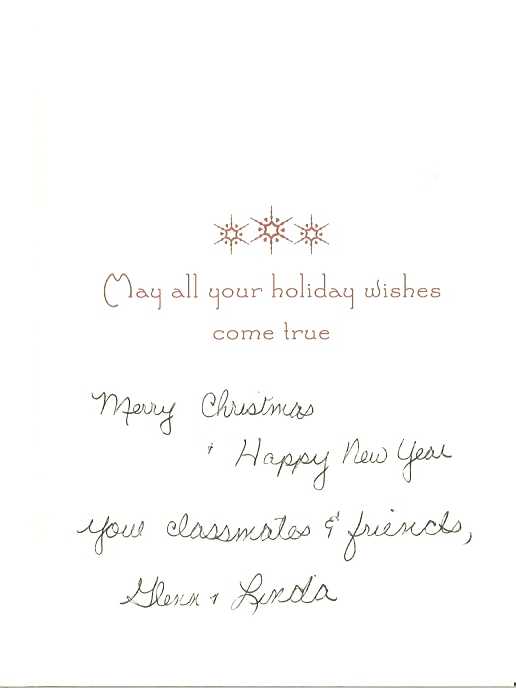 May all your holiday wishes
come true
Merry Christmas
+ Happy New Year
your classmates & friends,
Glenn + Linda